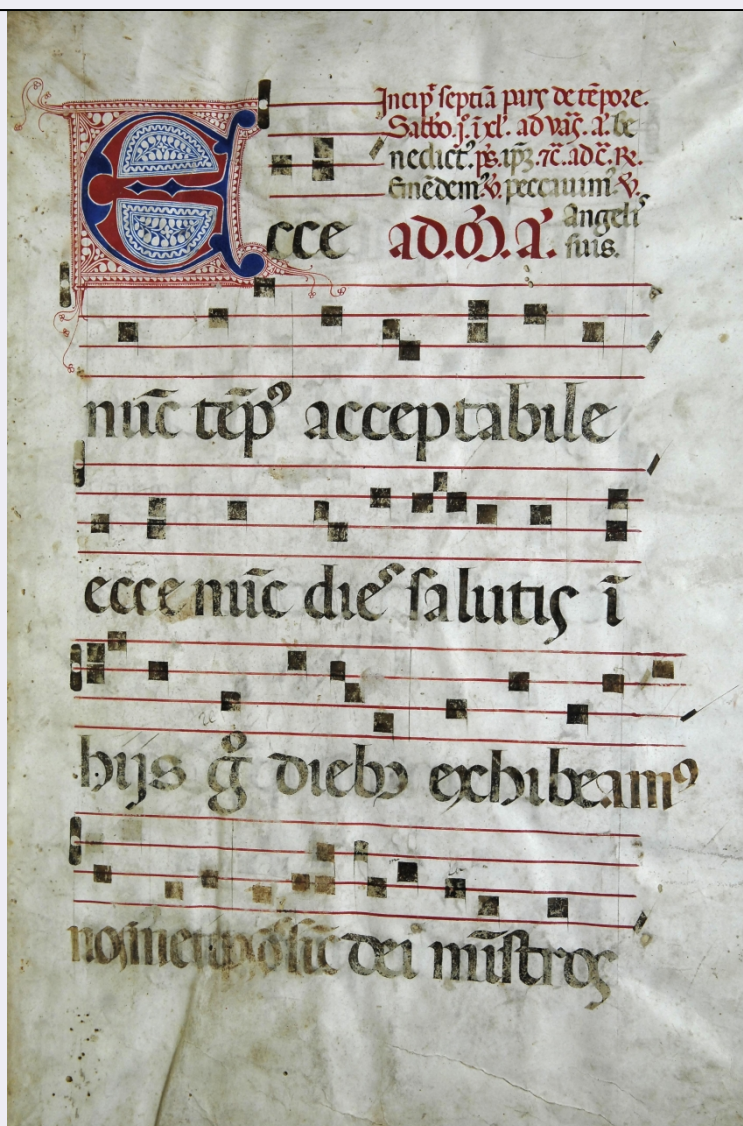 Incip̄ septīa pars de tēpore.
Sabb̄o. j. ī xl'. ad vās̄. a'. be
nedict'. ps̄. ip̄z. 7c̄. ad c̄. R̄.
Emēdem'. V̄. peccauim'. V̄.
Ecce ad. M̄. A'. Angeli'
suis.
nūc tēpꝰ acceptabile
ecce nūc dieˢ salutis ī
hijs g̊ diebꝰ exhibeamꝰ
nosmet sic̄ dei mīstros